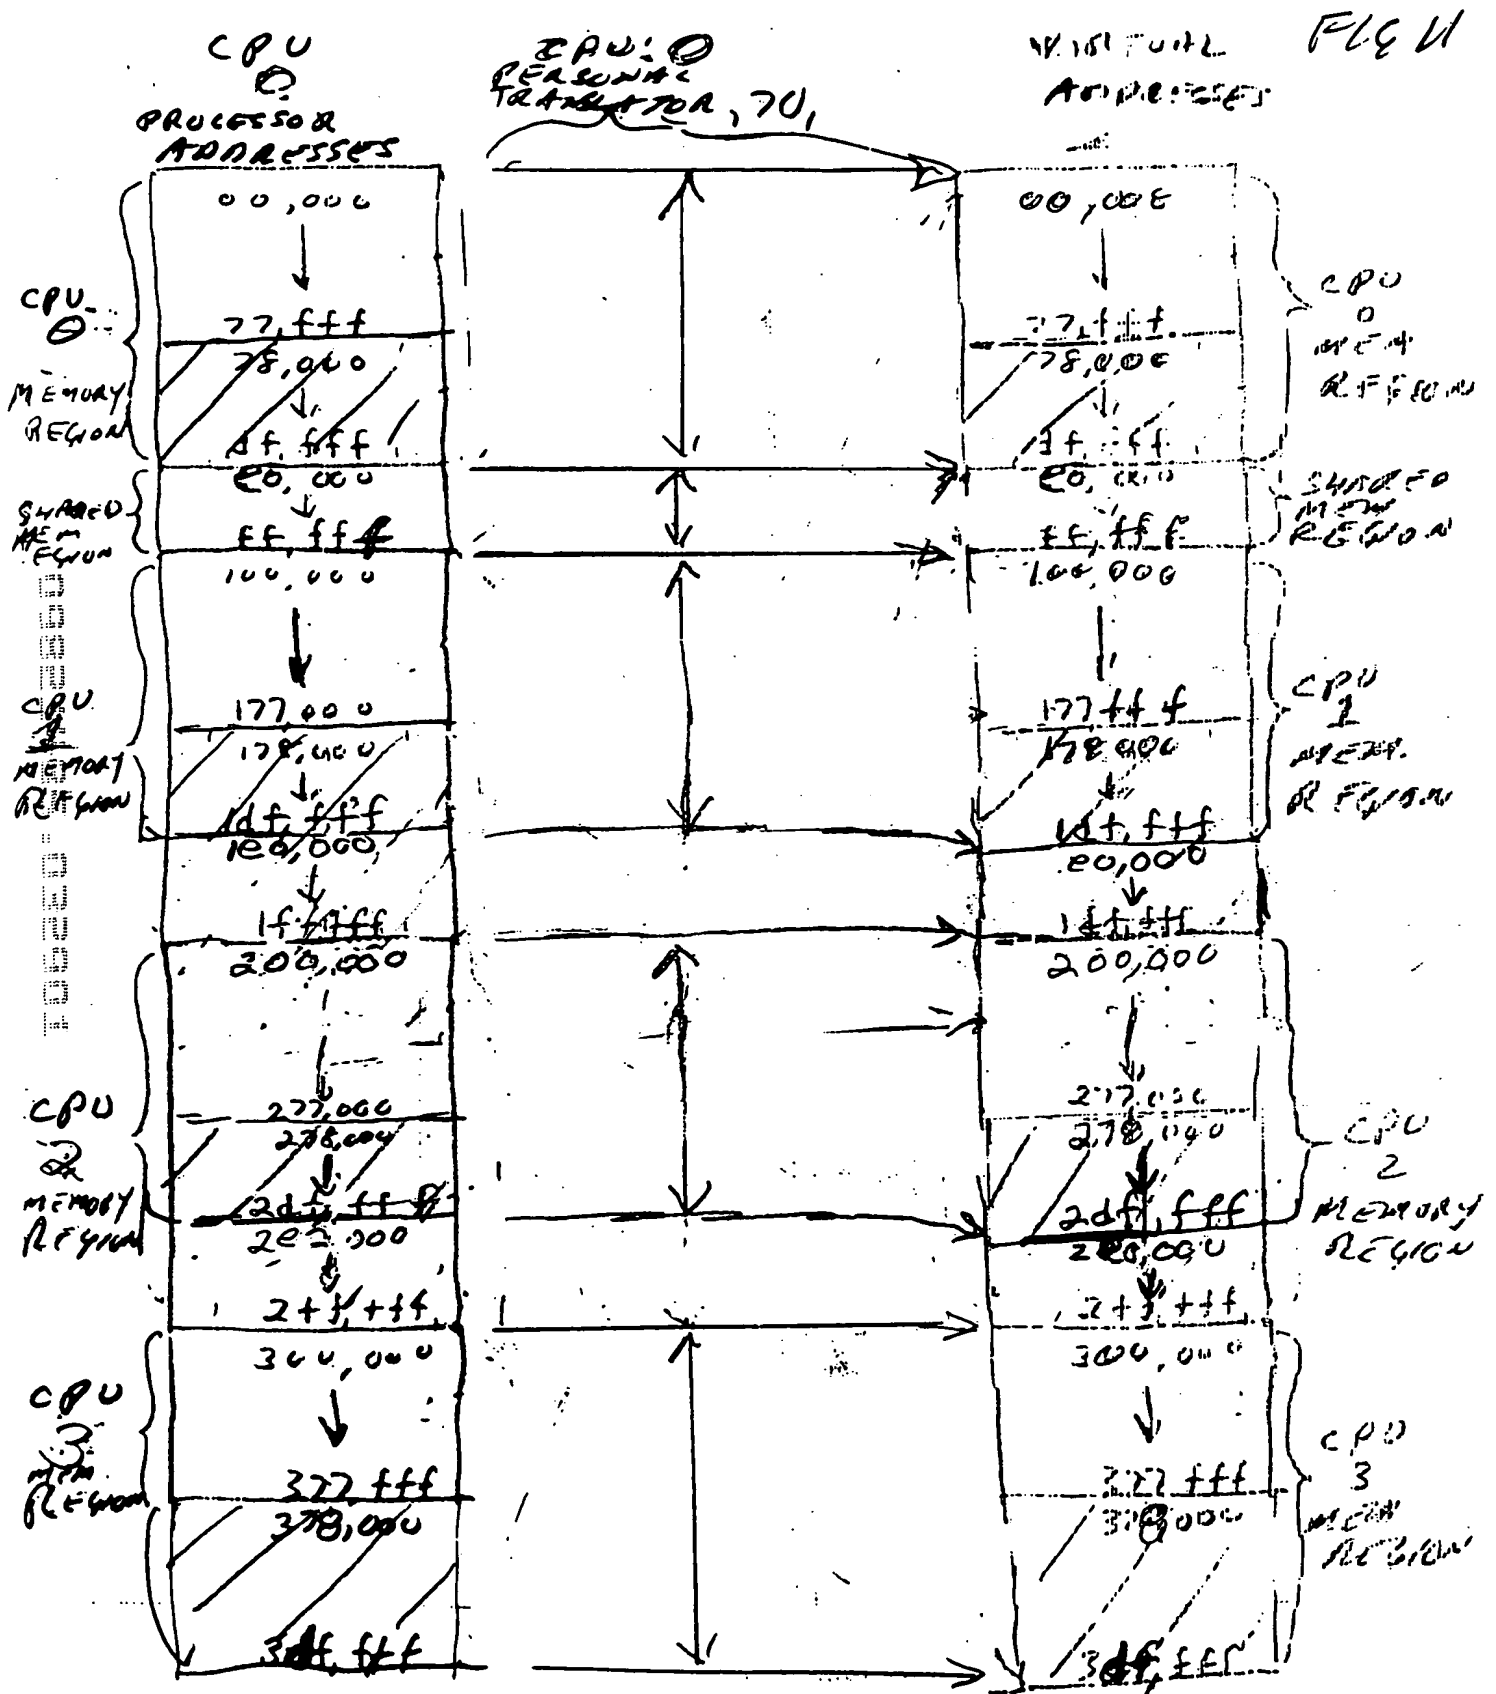 FIG 11
CPU
0
PROCESSOR
ADDRESSES
CPU: 0
PERSONAL
TRANSLATOR, 70,
VIRTUAL
ADDRESSES
CPU
0
MEMORY
REGION
SHARED
MEM
REGION
CPU
1
MEMORY
REGION
CPU
2
MEMORY
REGION
CPU
3
MEM
REGION
00,000
77,fff
78,000
df,fff
e0,000
ff,fff
100,000
177,000
178,000
1df,fff
1e0,000,
1ff,fff
200,000
277,000
278,000
2df,fff
2ff,fff
300,000
377 fff
378,000
3df,fff
00,000
77,fff
78,000
df,fff
e0,000
ff,fff
100,000
177ff f
178,000
1df,fff
e0,000
1ff,fff
200,000
277,000
278,000
2df,fff
2e0,000
2ff,fff
300,000
377 fff
378,000
3df,fff
CPU
0
MEM
REGION
SHARED
MEM
REGION
CPU
1
MEM.
REGION
CPU
2
MEMORY
REGION
CPU
3
MEM
REGION